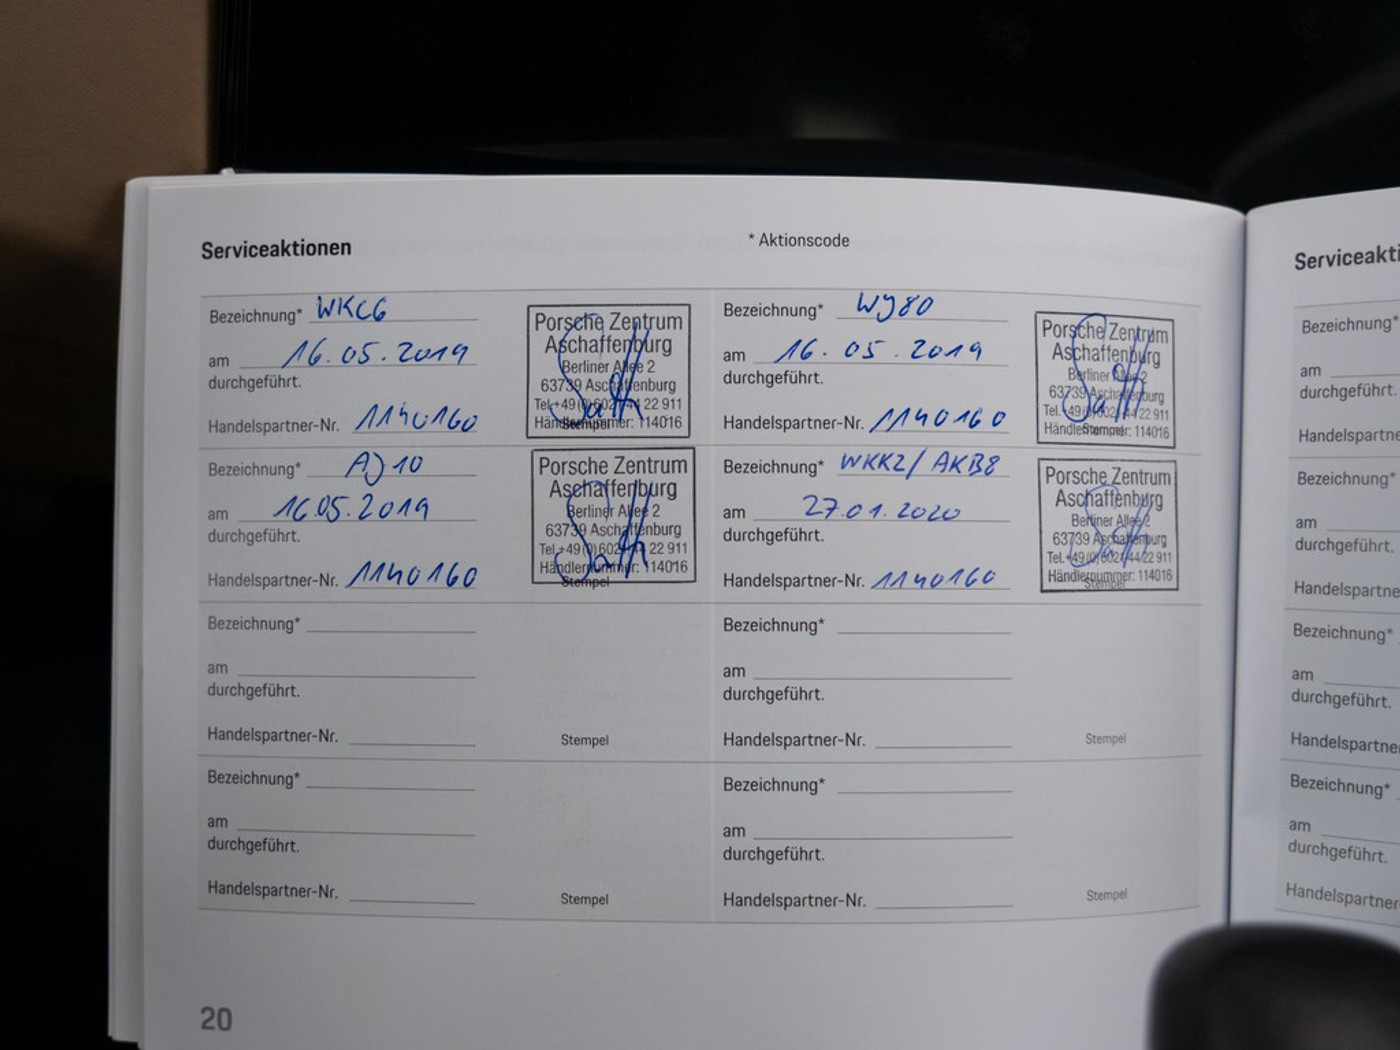 Serviceaktionen
* Aktionscode
Bezeichnung* WKC6
am 16.05.2019
durchgeführt.
Handelspartner-Nr. 1140160
Porsche Zentrum
Aschaffenburg
Berliner Allee 2
63739 Aschaffenburg
Tel.+49(0)6021 44 22 911
Händlernummer: 114016
Stempel
Bezeichnung* WJ80
am 16.05.2019
durchgeführt.
Handelspartner-Nr. 1140160
Porsche Zentrum
Aschaffenburg
Berliner Allee 2
63739 Aschaffenburg
Tel.+49(0)6021 44 22 911
Händlernummer: 114016
Stempel
Bezeichnung* AJ10
am 16.05.2019
durchgeführt.
Handelspartner-Nr. 1140160
Porsche Zentrum
Aschaffenburg
Berliner Allee 2
63739 Aschaffenburg
Tel.+49(0)6021 44 22 911
Händlernummer: 114016
Stempel
Bezeichnung* WKK2/AKB8
am 27.01.2020
durchgeführt.
Handelspartner-Nr. 1140160
Porsche Zentrum
Aschaffenburg
Berliner Allee 2
63739 Aschaffenburg
Tel.+49(0)6021 44 22 911
Händlernummer: 114016
Stempel
Bezeichnung*
am
durchgeführt.
Handelspartner-Nr.
Stempel
Bezeichnung*
am
durchgeführt.
Handelspartner-Nr.
Stempel
Bezeichnung*
am
durchgeführt.
Handelspartner-Nr.
Stempel
Bezeichnung*
am
durchgeführt.
Handelspartner-Nr.
Stempel
20
Serviceakti
Bezeichnung*
am
durchgeführt.
Handelspartne
Bezeichnung*
am
durchgeführt.
Handelspartne
Bezeichnung*
am
durchgeführt.
Handelspartne
Bezeichnung*
am
durchgeführt.
Handelspartner